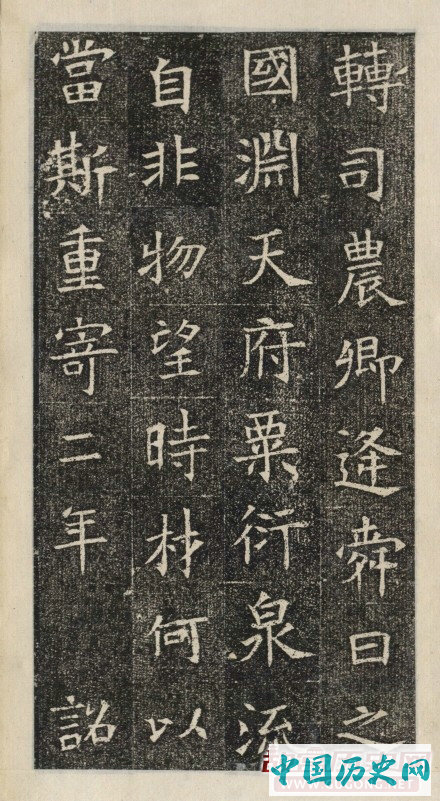 轉司農卿逄舜日之
國淵天府粟衍泉流
自非物望時材何以
當斯重寄二年 詔
中国历史网